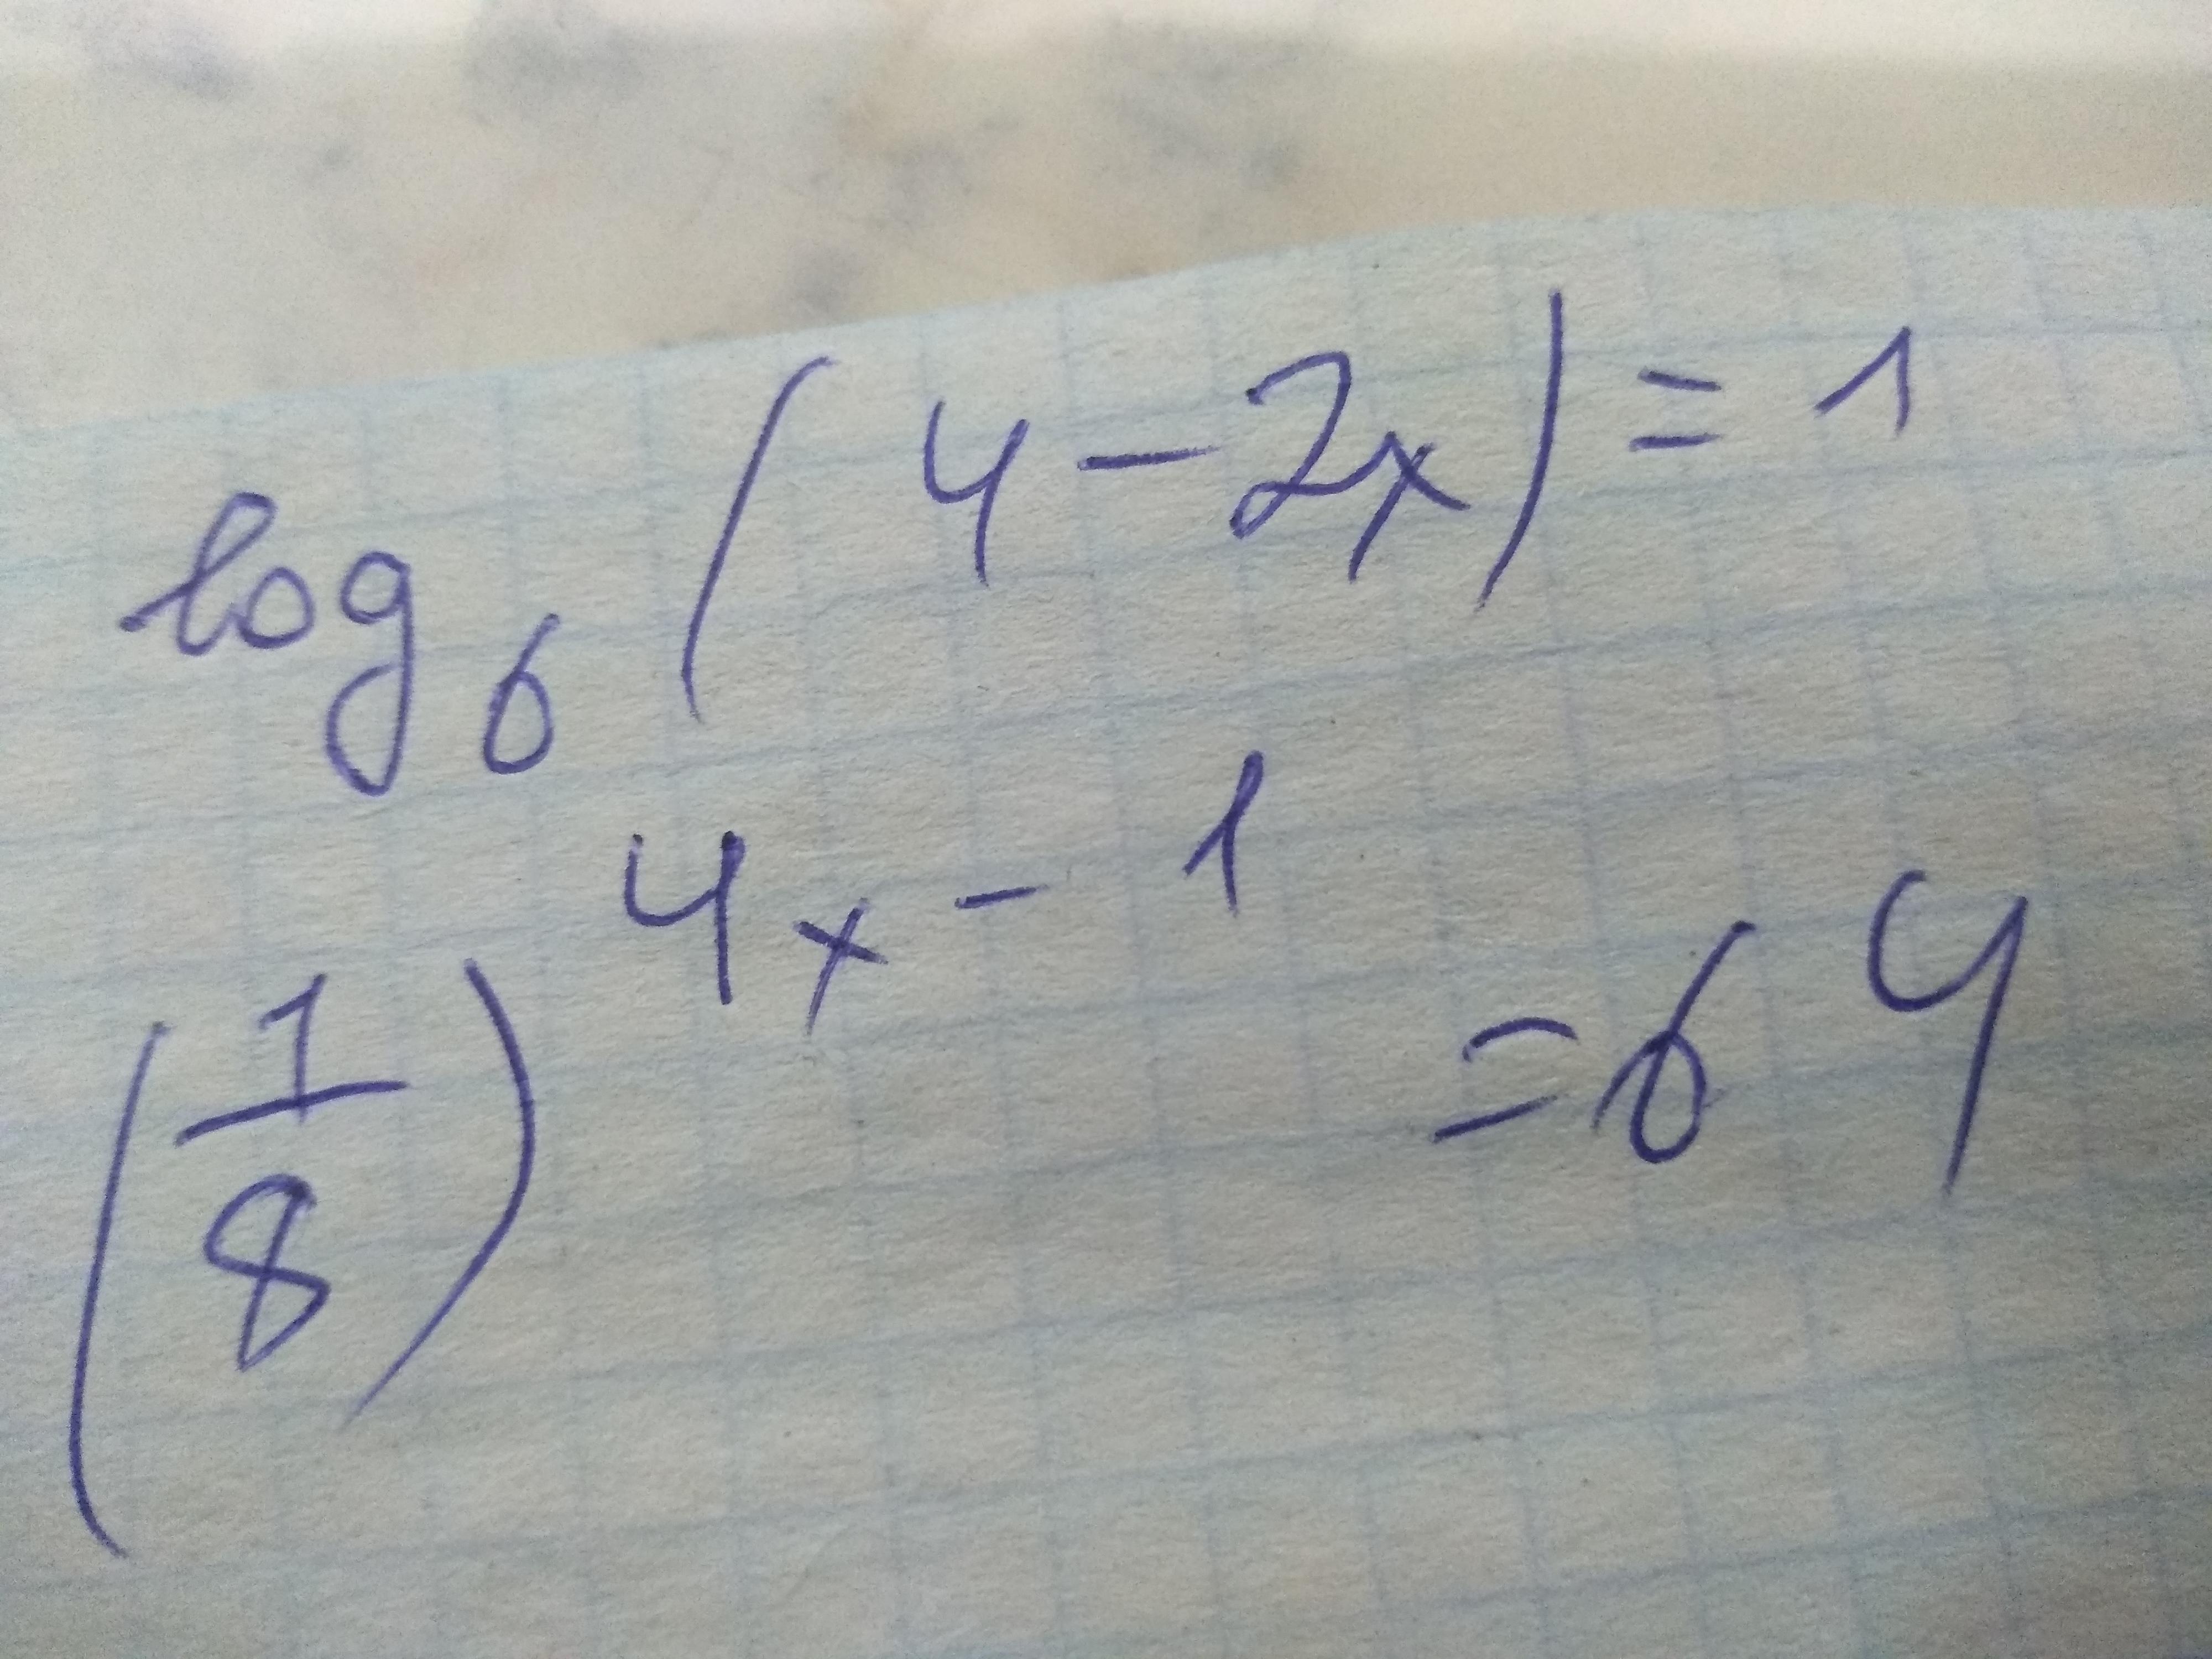 log₆(4-2x)=1
(1/8)^(4x-1)=64